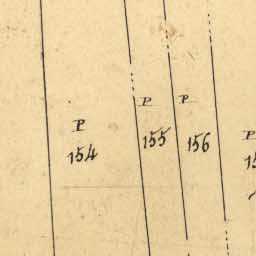 P
154
P
155
P
156
P